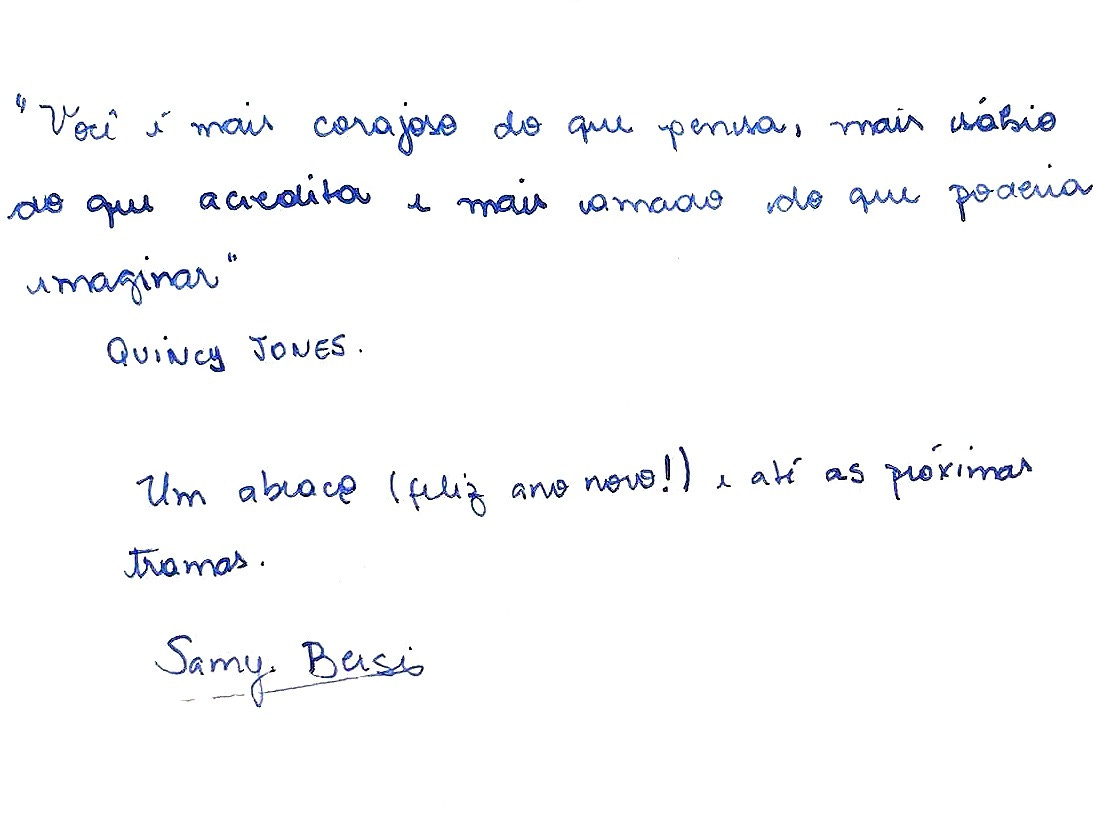 "Você é mais corajoso do que pensa, mais sábio
do que acredita e mais amado do que poderia
imaginar"
QUINCY JONES.
Um abraço (feliz ano novo!) e até as próximas
tramas.
Samy